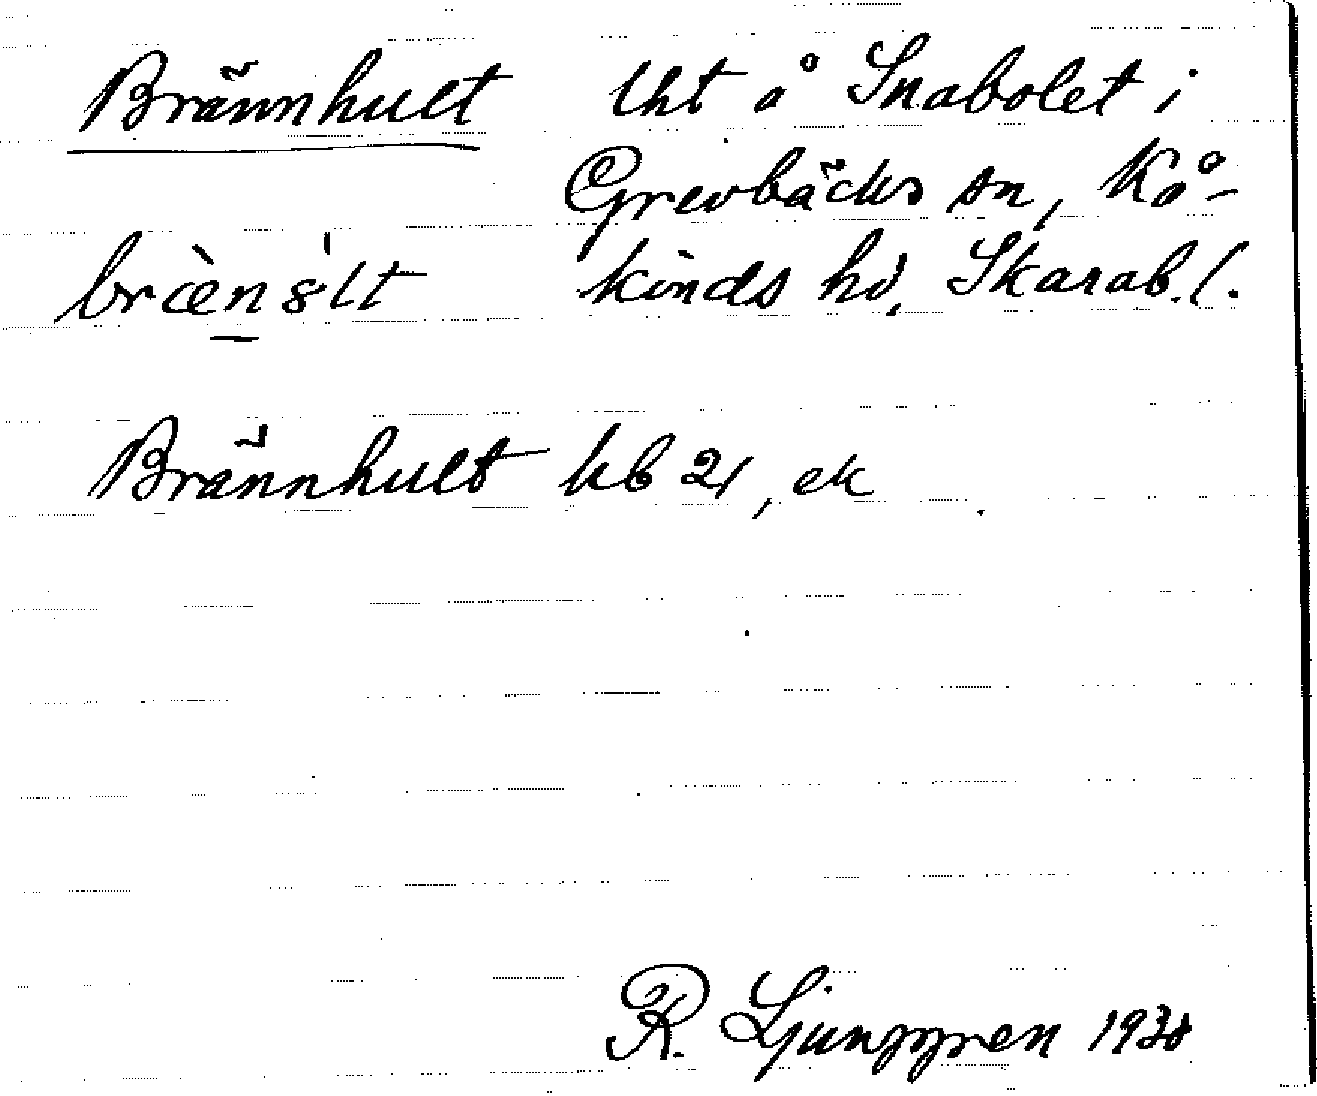 Brännhult lht å Snabolet i
Grevbäcks sn, Kå-
brænslt kinds hd, Skarab. l.
Brännhult kb 21, ek
R. Ljunggren 1930